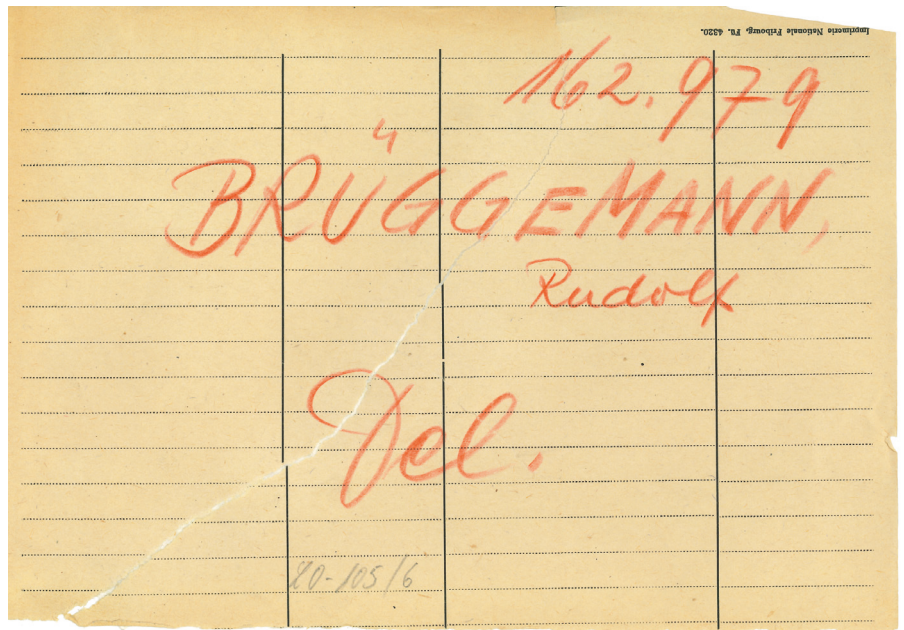 Imprimerie Nationale Fribourg. Fü. 4320.
162.979
BRÜGGEMANN,
Rudolf
Del.
20-105/6